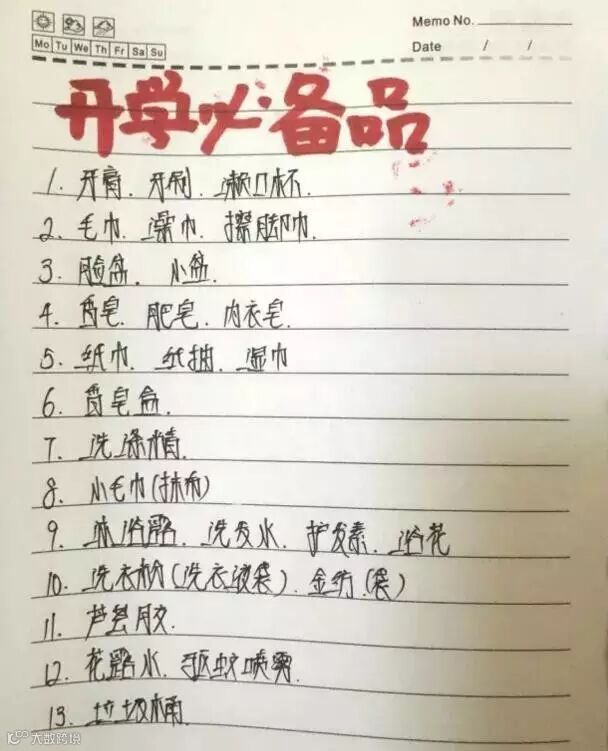 Memo No.
Mo Tu We Th Fr Sa Su
Date / /
开学必备品
1. 牙膏. 牙刷. 漱口杯.
2. 毛巾. 澡巾. 擦脚巾.
3. 脸盆. 小盆.
4. 香皂. 肥皂. 内衣皂.
5. 纸巾. 纸抽. 湿巾
6. 香皂盒.
7. 洗涤精.
8. 小毛巾(抹布)
9. 沐浴露. 洗发水. 护发素. 浴花
10. 洗衣粉(洗衣液袋). 金纺.(袋)
11. 芦荟胶.
12. 花露水. 驱蚊喷雾.
13. 垃圾桶.
大数跨境